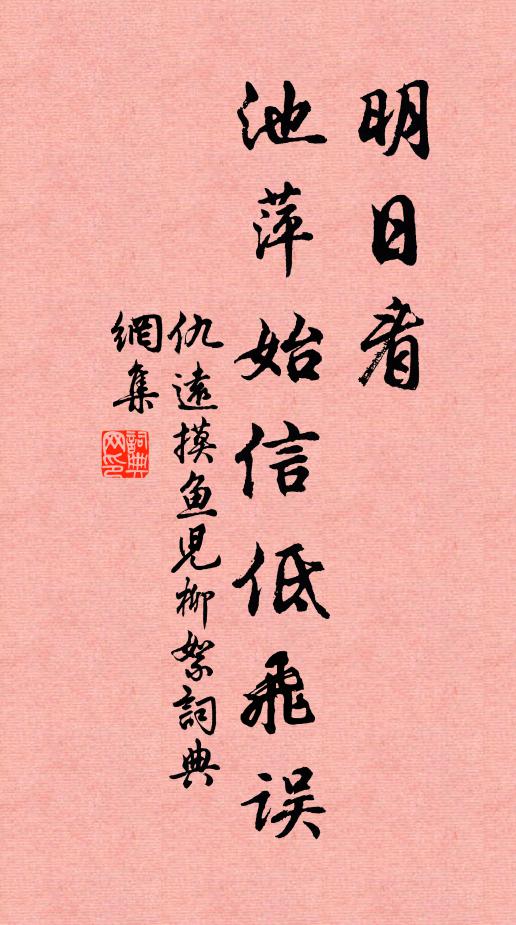 明日看
池萍始信低飛误
仇遠摸魚兒柳絮詞典
網集
詞典
网印